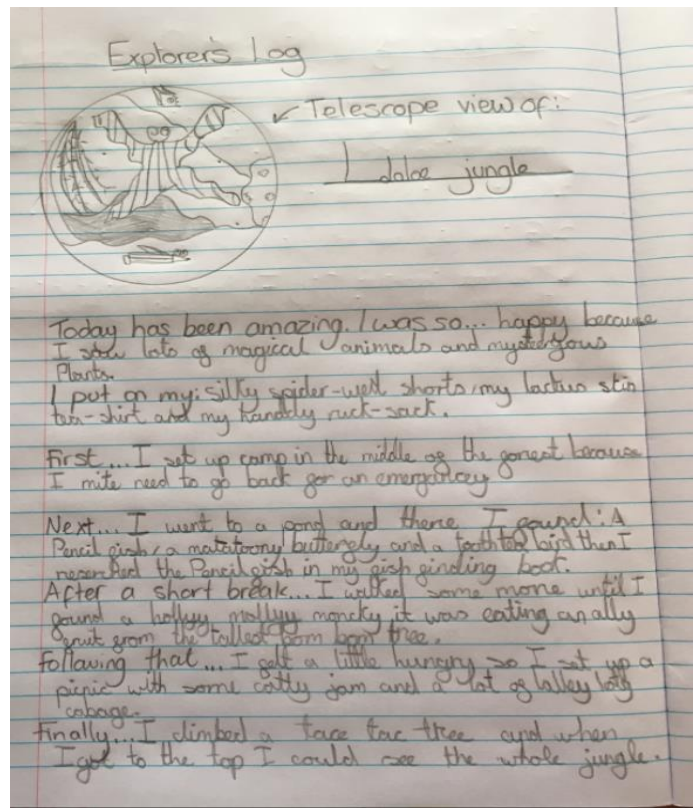 Explorer's Log
← Telescope view of:
jungle
Today has been amazing. I was so... happy because
I saw lots of magical animals and mysteryous
Plants.
I put on my: silky spider-web shorts, my skin
tea-shirt and my handly ruck-sack.
First... I set up camp in the middle of the forest because
I mite need to go back for an emergancy
Next... I went to a pond and there I found: A
Pencil fish, a butterfly and a bird then I
the Pencil fish in my fish finding book.
After a short break... I walked some more until I
found a hollyy mollyy moncky it was eating an ally
fruit from the tallest bom tree.
Following that... I felt a little hungry so I set up a
picnic with some catty jam and a lot of lolley
cabage.
Finally... I climbed a tace tac tree and when
I got to the top I could see the whole jungle.